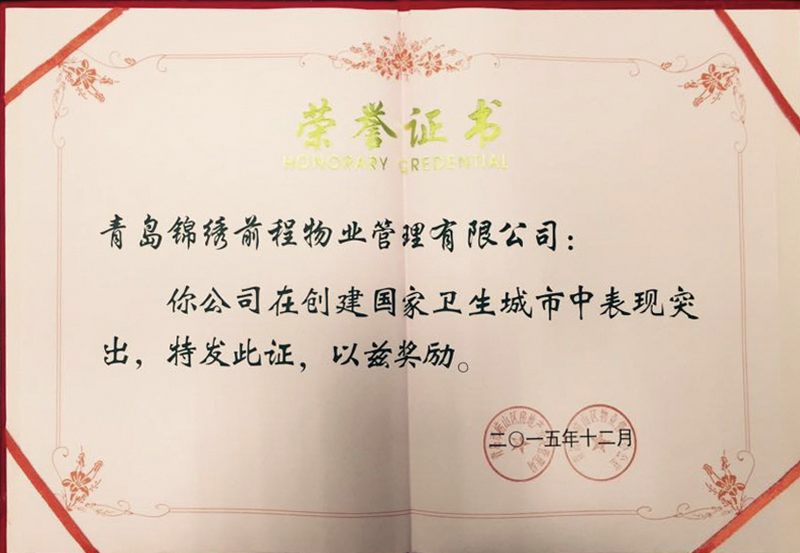 荣誉证书
HONORARY CREDENTIAL
青岛锦绣前程物业管理有限公司：
你公司在创建国家卫生城市中表现突
出，特发此证，以兹奖励。
二〇一五年十二月